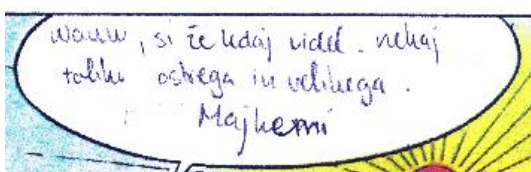 wouw, si že kdaj videl. nekaj
toliko ostrega in velikega.
Majkemi